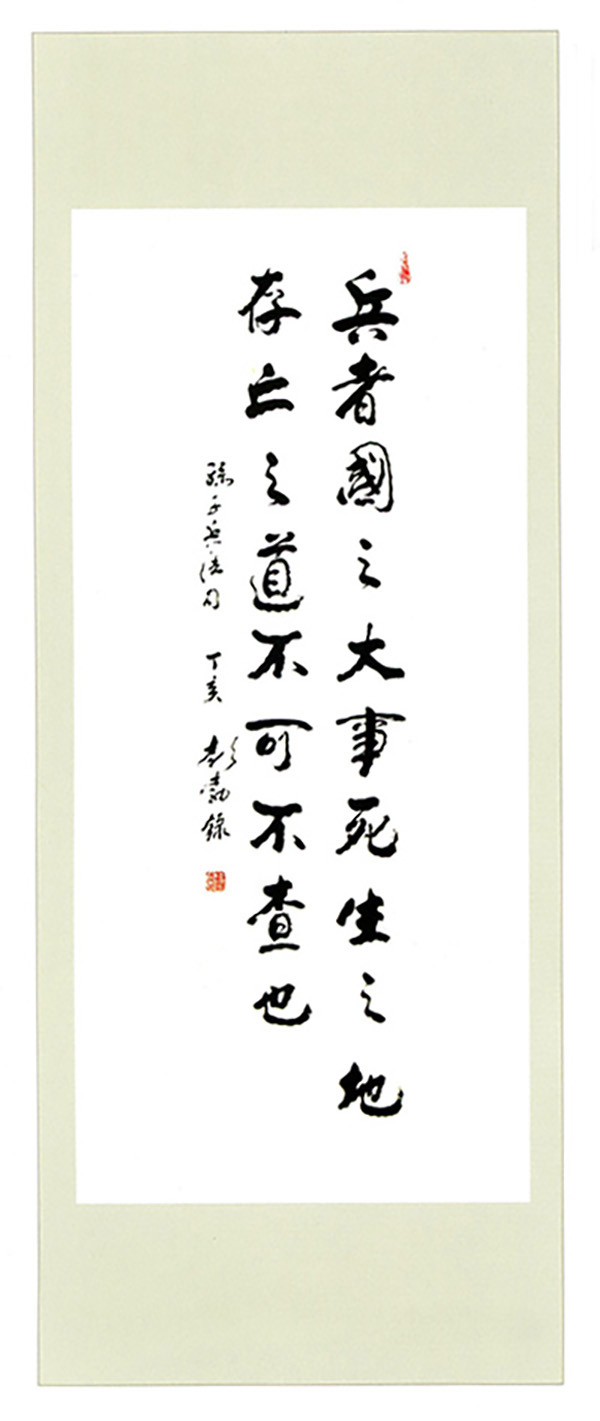 兵者國之大事死生之地
存亡之道不可不查也
孫子兵法句 丁亥 彭勃錄